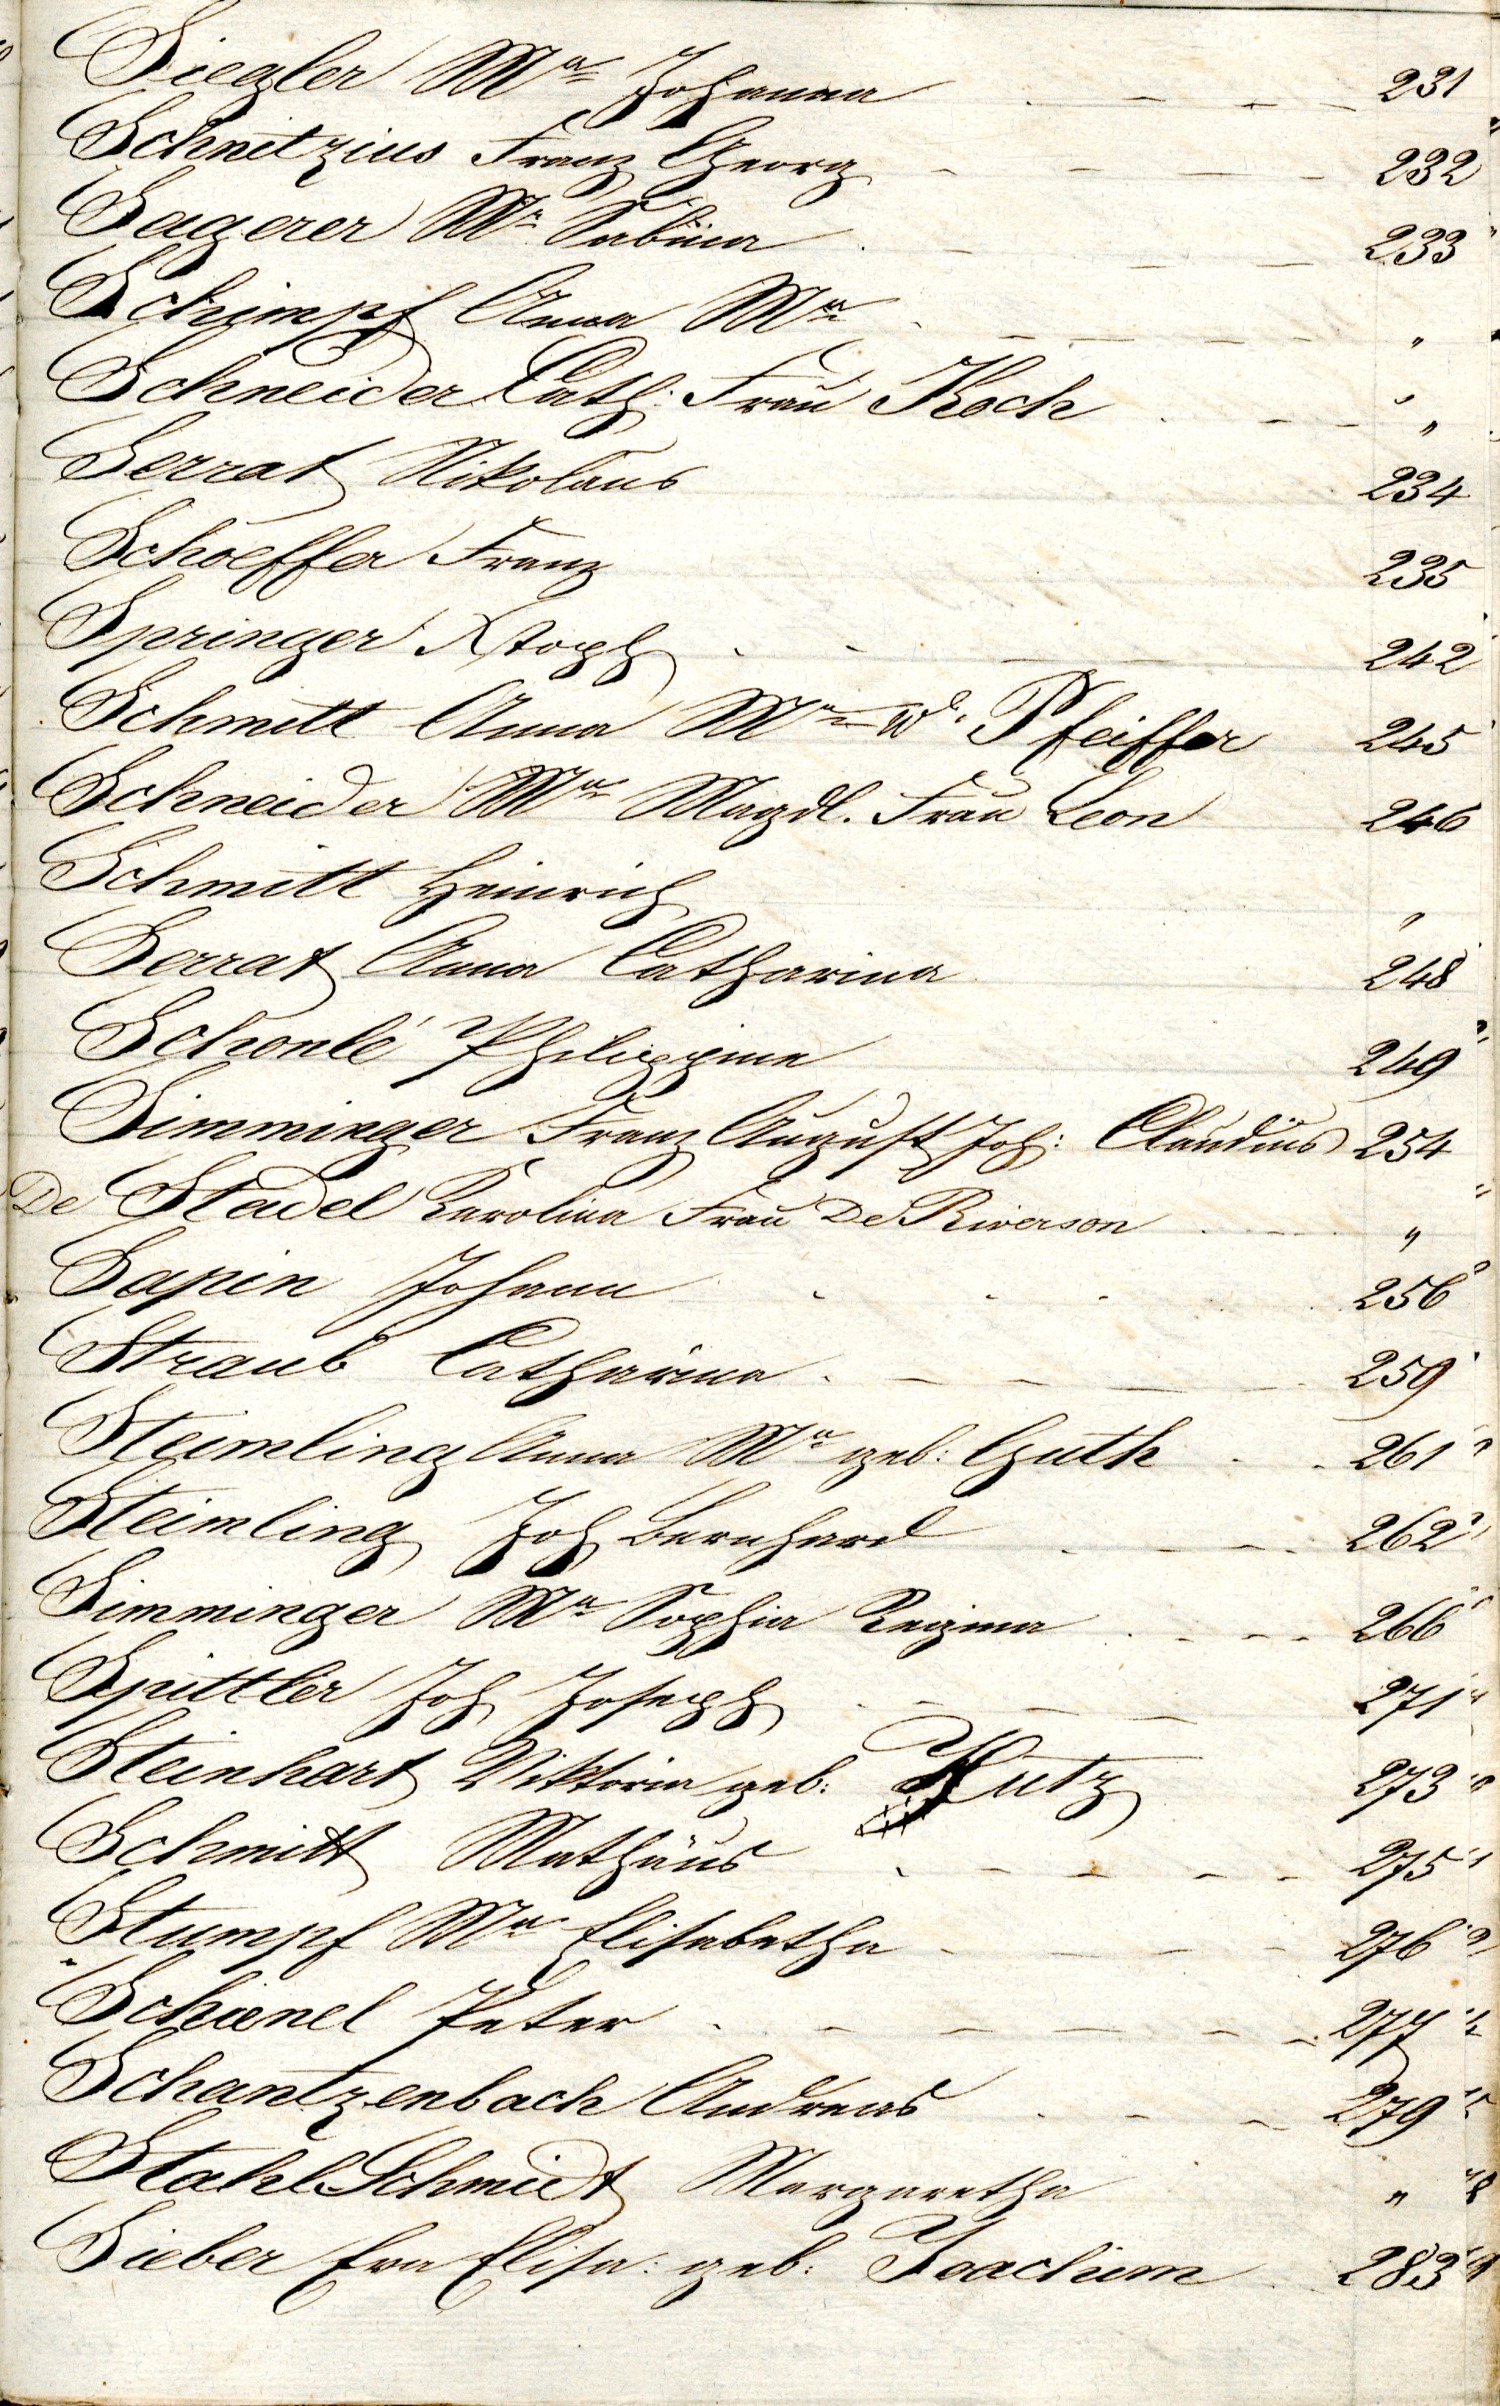 Siegler Mª Johanna 231
Schnetzius Franz Georg 232
Sagerer Mª Sabina 233
Schimpf Anna Mª "
Schneider Cath: Frau Koch "
Serrat Nikolaus 234
Schoeffer Franz 235
Springer Xstoph 242
Schmitt Anna Mª Wᵉ Pfeiffer 245
Schneider Mª Magdl. Frau Leon 246
Schmitt Heinrich "
Serrat Anna Catharina 248
Schonlé Philippine 249
Simminger Franz August Joh: Claudius 254
De Stadel Karolina Frau De Riverson "
Sapin Johann 256
Straub Catharina 259
Steimling Anna Mª geb: Guth 261
Steimling Joh Bernhard 262
Simminger Mª Sophia Regina 266
Spittler Joh Joseph 271
Steinhart Viktoria geb: Kutz 273
Schmitt Mathäus 275
Stumpf Mª Elisabetha 276
Schænel Peter 277
Schantzenbach Andreas 279
StahlSchmidt Margaretha "
Sieber Eva Elisa: geb: Joachim 283